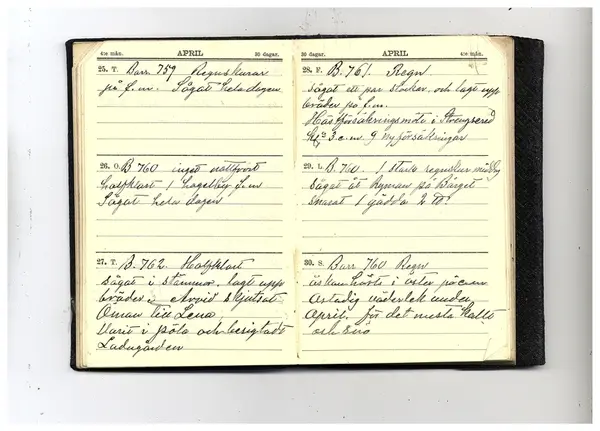 4:e mån. APRIL 30 dagar.
25. T. Barr. 759 Regnskurar
på f.m. Sågat hela dagen
26. O. B 760 inget nattfrost
halfklart 1 hagelby f.m
Sågat hela dagen
27. T. B. 762. Halfklart
sågat i stämmor, lagt upp
bräder i Arvid skjutsat
Oman till Lena
Varit i och besigtadt
Ladugården
30 dagar. APRIL 4:e mån.
28. F. B. 761. Regn
sågat ett par stockar, och lagt upp
bräder på f.m.
Hästförsäkringsmöte i Strengsered
kl. 3 e.m. 9 nyförsäkringar
29. L. B. 760. 1 stark regnskur middag
sågat åt Nyman på Berget
snarat 1 gädda 2 tb.
30. S. Barr 760 Regn
åskan hörts i öster på e.m
Ostadig väderlek under
April, för det mesta kallt
och snö